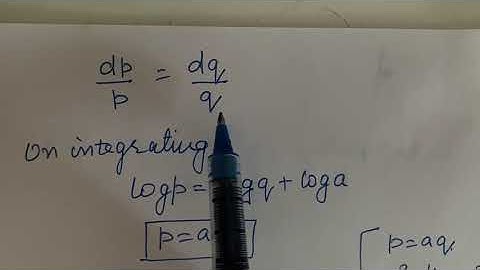 dp/p = dq/q
On integrating
log p = gq + log a
p = a
p = aq